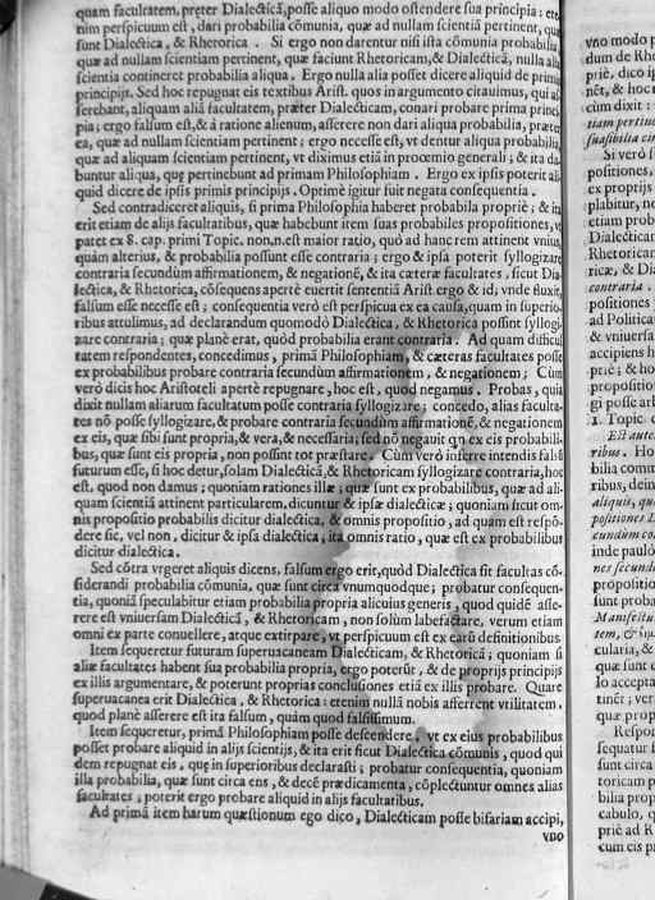 quam facultatem, preter Dialecticā, posse aliquo modo ostendere sua principia: ete
nim perspicuum est, dari probabilia cōmunia, quæ ad nullam scientiā pertinent, quæ
sunt Dialectica, & Rhetorica. Si ergo non darentur nisi ista cōmunia probabilia,
quæ ad nullam scientiam pertinent, quæ faciunt Rhetoricam, & Dialecticā, nulla alia
scientia contineret probabilia aliqua. Ergo nulla alia posset dicere aliquid de primis
principijs. Sed hoc repugnat eis textibus Arist. quos in argumento citauimus, qui as
serebant, aliquam aliā facultatem, præter Dialecticam, conari probare prima princi
pia; ergo falsum est, & à ratione alienum, asserere non dari aliqua probabilia, præter
ea, quæ ad nullam scientiam pertinent; ergo necesse est, vt dentur aliqua probabilia,
quæ ad aliquam scientiam pertinent, vt diximus etiā in proœmio generali; & ita da
buntur aliqua, quę pertinebunt ad primam Philosophiam. Ergo ex ipsis poterit ali
quid dicere de ipsis primis principijs. Optimè igitur fuit negata consequentia.
Sed contradiceret aliquis, si prima Philosophia haberet probabila propriè; & ita
erit etiam de alijs facultatibus, quæ habebunt item suas probabiles propositiones, vt
patet ex 8. cap. primi Topic. non.n.est maior ratio, quò ad hanc rem attinent vnius,
quàm alterius, & probabilia possunt esse contraria; ergo & ipsa poterit syllogizare
contraria secundùm affirmationem, & negationē, & ita cæteræ facultates, sicut Dia
lectica, & Rhetorica, cōsequens apertè euertit sententiā Arist ergo & id, vnde fluxit,
falsum esse necesse est; consequentia verò est perspicua ex ea causa, quam in superio
ribus attulimus, ad declarandum quomodò Dialectica, & Rhetorica possint syllogi
zare contraria; quæ planè erat, quòd probabilia erant contraria. Ad quam difficul
tatem respondentes, concedimus, primā Philosophiam, & cæteras facultates posse
ex probabilibus probare contraria secundùm affirmationem, & negationem; Cùm
verò dicis hoc Aristoteli apertè repugnare, hoc est, quod negamus. Probas, quia
dixit nullam aliarum facultatum posse contraria syllogizare; concedo, alias faculta-
tes nō posse syllogizare, & probare contraria secundùm affirmationē, & negationem
ex eis, quæ sibi sunt propria, & vera, & necessaria; sed nō negauit qn ex eis probabili-
bus, quæ sunt eis propria, non possint tot præstare. Cùm verò inferre intendis falsū
futurum esse, si hoc detur, solam Dialecticā, & Rhetoricam syllogizare contraria, hoc
est, quod non damus; quoniam rationes illæ; quæ sunt ex probabilibus, quæ ad ali-
quam scientiā attinent particularem, dicuntur & ipsæ dialecticæ; quoniam sicut om-
nis propositio probabilis dicitur dialectica, & omnis propositio, ad quam est respō-
dere sic, vel non, dicitur & ipsa dialectica, ita omnis ratio, quæ est ex probabilibus
dicitur dialectica.
Sed cōtra vrgeret aliquis dicens, falsum ergo erit, quòd Dialectica sit facultas cō-
siderandi probabilia cōmunia, quæ sunt circa vnumquodque; probatur consequen-
tia, quoniā speculabitur etiam probabilia propria alicuius generis, quod quidē asse-
rere est vniuersam Dialecticā, & Rhetoricam, non solùm labefactare, verum etiam
omni ex parte conuellere, atque extirpare, vt perspicuum est ex earū definitionibus
Item sequeretur futuram superuacaneam Dialecticam, & Rhetoricā; quoniam si
aliæ facultates habent sua probabilia propria, ergo poterūt, & de proprijs principijs
ex illis argumentare, & poterunt proprias conclusiones etiā ex illis probare. Quare
superuacanea erit Dialectica, & Rhetorica: etenim nullā nobis afferrent vtilitatem,
quod planè asserere est ita falsum, quàm quod falsissimum.
Item sequeretur, primā Philosophiam posse descendere, vt ex eius probabilibus
posset probare aliquid in alijs scientijs, & ita erit sicut Dialectica cōmunis, quod qui
dem repugnat eis, quę in superioribus declarasti; probatur consequentia, quoniam
illa probabilia, quæ sunt circa ens, & decē prædicamenta, cōplectuntur omnes alias
facultates; poterit ergo probare aliquid in alijs facultatibus.
Ad primā item harum quæstionum ego dico, Dialecticam posse bifariam accipi,
vno
vno modo p
dum de Rhe
priè, dico ip
nēt, & hoc t
cùm dixit:
tiam pertine
suasibilia cir
Si verò s
positiones,
ex proprijs
plabitur, no
etiam prob
Dialecticar
Rhetoricam
ricæ, & Dia
contraria.
positiones
ad Politica
& vniuersa
accipiens h
priè; & hoc
propositio
gi posse art
1. Topic c
Est aute
ribus. Ho
bilia comm
ribus, dein
aliquis, qu
positiones D
cundùm co
inde paulò
nes secundù
propositio
sunt proba
Manifestu
tem, &
cularia, &
quæ sunt c
lo accepta
tinēt; ver
quæ prop
Respon
sequatur f
sunt circa
toricam p
bilia prop
cabulo, q
priè ad R
cum eis p